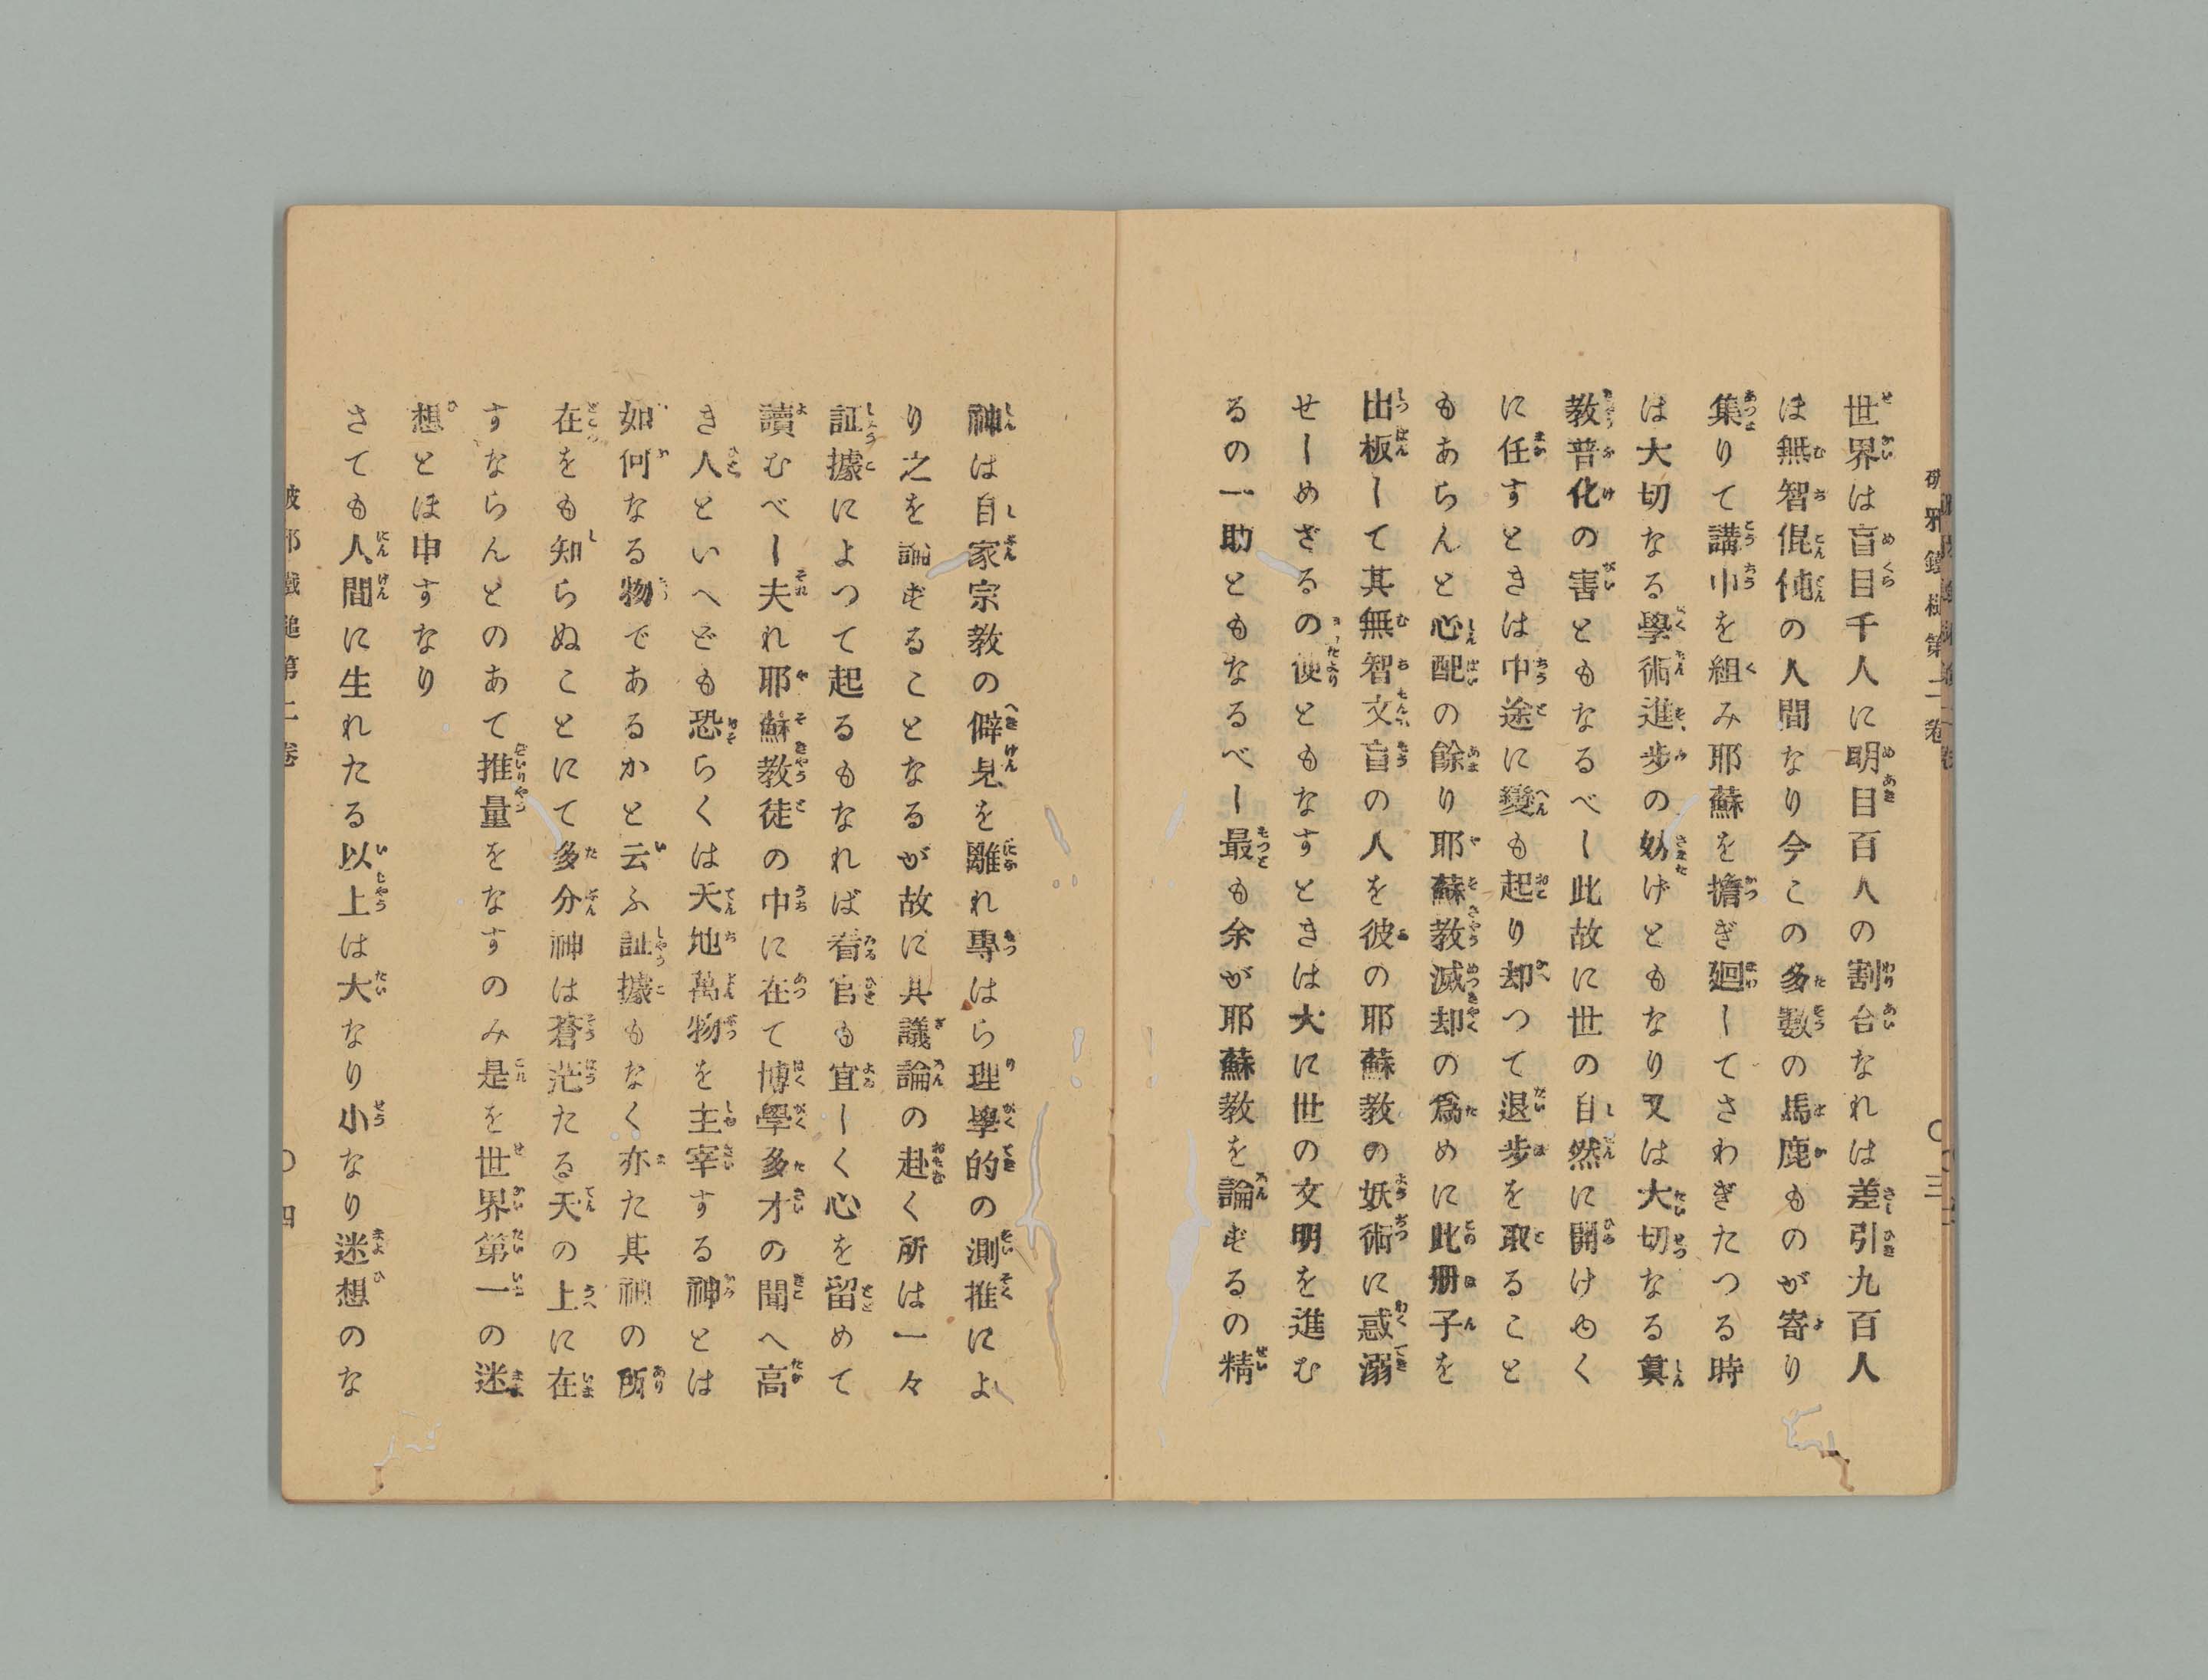 世界は盲目千人に明目百人の割合なれは差引九百人
ほ無智倱伅の人間なり今この多數の馬鹿ものが寄り
集りて講中を組み耶蘇を擔ぎ廻してさわぎたつる時
は大切なる學術進步の妨げともなり又は大切なる眞
教普化の害ともなるべし此故に世の自然に開けゆく
に任すときは中途に變も起り却つて退步を取ること
もあらんと心配の餘り耶蘇教滅却の爲めに此册子を
出板して其無智文盲の人を彼の耶蘇教の妖術に惑溺
せしめざるの便ともなすときは大に世の文明を進む
るの一助ともなるべし最も余が耶蘇教を論ずるの精
神は自家宗教の僻見を離れ專はら理學的の測推によ
り之を論ずることなるが故に其議論の赴く所は一々
証據によつて起るもなれば看官も宜しく心を留めて
讀むべし夫れ耶蘇教徒の中に在て博學多才の聞へ高
き人といへども恐らくは天地萬物を主宰する神とは
如何なる物であるかと云ふ証據もなく亦た其神の所
在をも知らぬことにて多分神は蒼茫たる天の上に在
すならんとのあて推量をなすのみ是を世界第一の迷
想とほ申すなり
さても人間に生れたる以上は大なり小なり迷想のな
破邪鐵槌第二卷
〇四